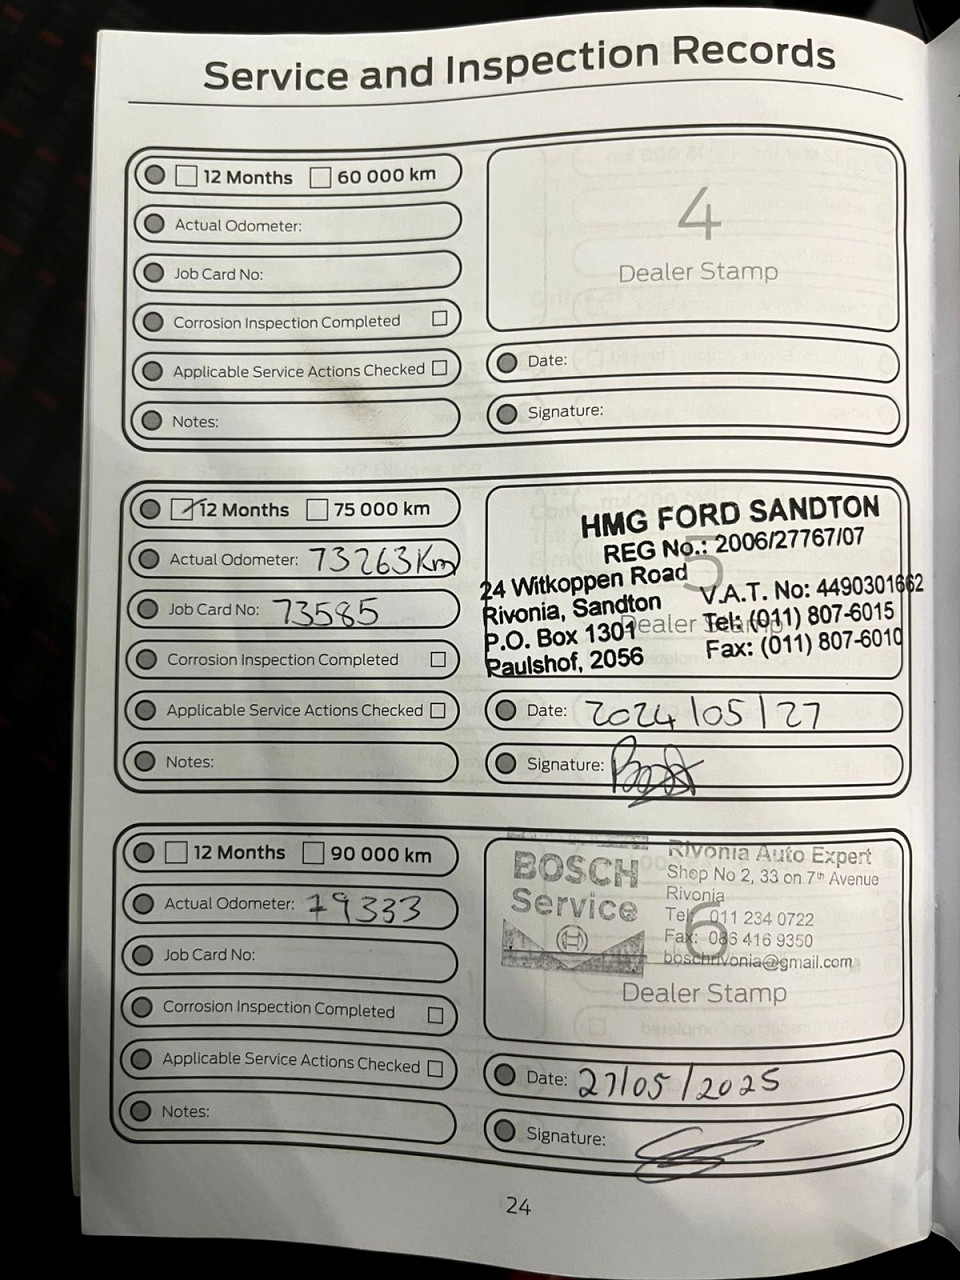 Service and Inspection Records
12 Months 60 000 km
Actual Odometer:
Job Card No:
Corrosion Inspection Completed
Applicable Service Actions Checked
Notes:
4
Dealer Stamp
Date:
Signature:
12 Months 75 000 km
Actual Odometer: 73263Km
Job Card No: 73585
Corrosion Inspection Completed
Applicable Service Actions Checked
Notes:
5
Dealer Stamp
HMG FORD SANDTON
REG No.: 2006/27767/07
24 Witkoppen Road
Rivonia, Sandton
P.O. Box 1301
Paulshof, 2056
V.A.T. No: 4490301662
Tel: (011) 807-6015
Fax: (011) 807-6010
Date: 2024/05/27
Signature:
12 Months 90 000 km
Actual Odometer: 79333
Job Card No:
Corrosion Inspection Completed
Applicable Service Actions Checked
Notes:
BOSCH
Service
Rivonia Auto Expert
Shop No 2, 33 on 7th Avenue
Rivonia
Tel: 011 234 0722
Fax: 086 416 9350
boschrivonia@gmail.com
6
Dealer Stamp
Date: 27/05/2025
Signature:
24